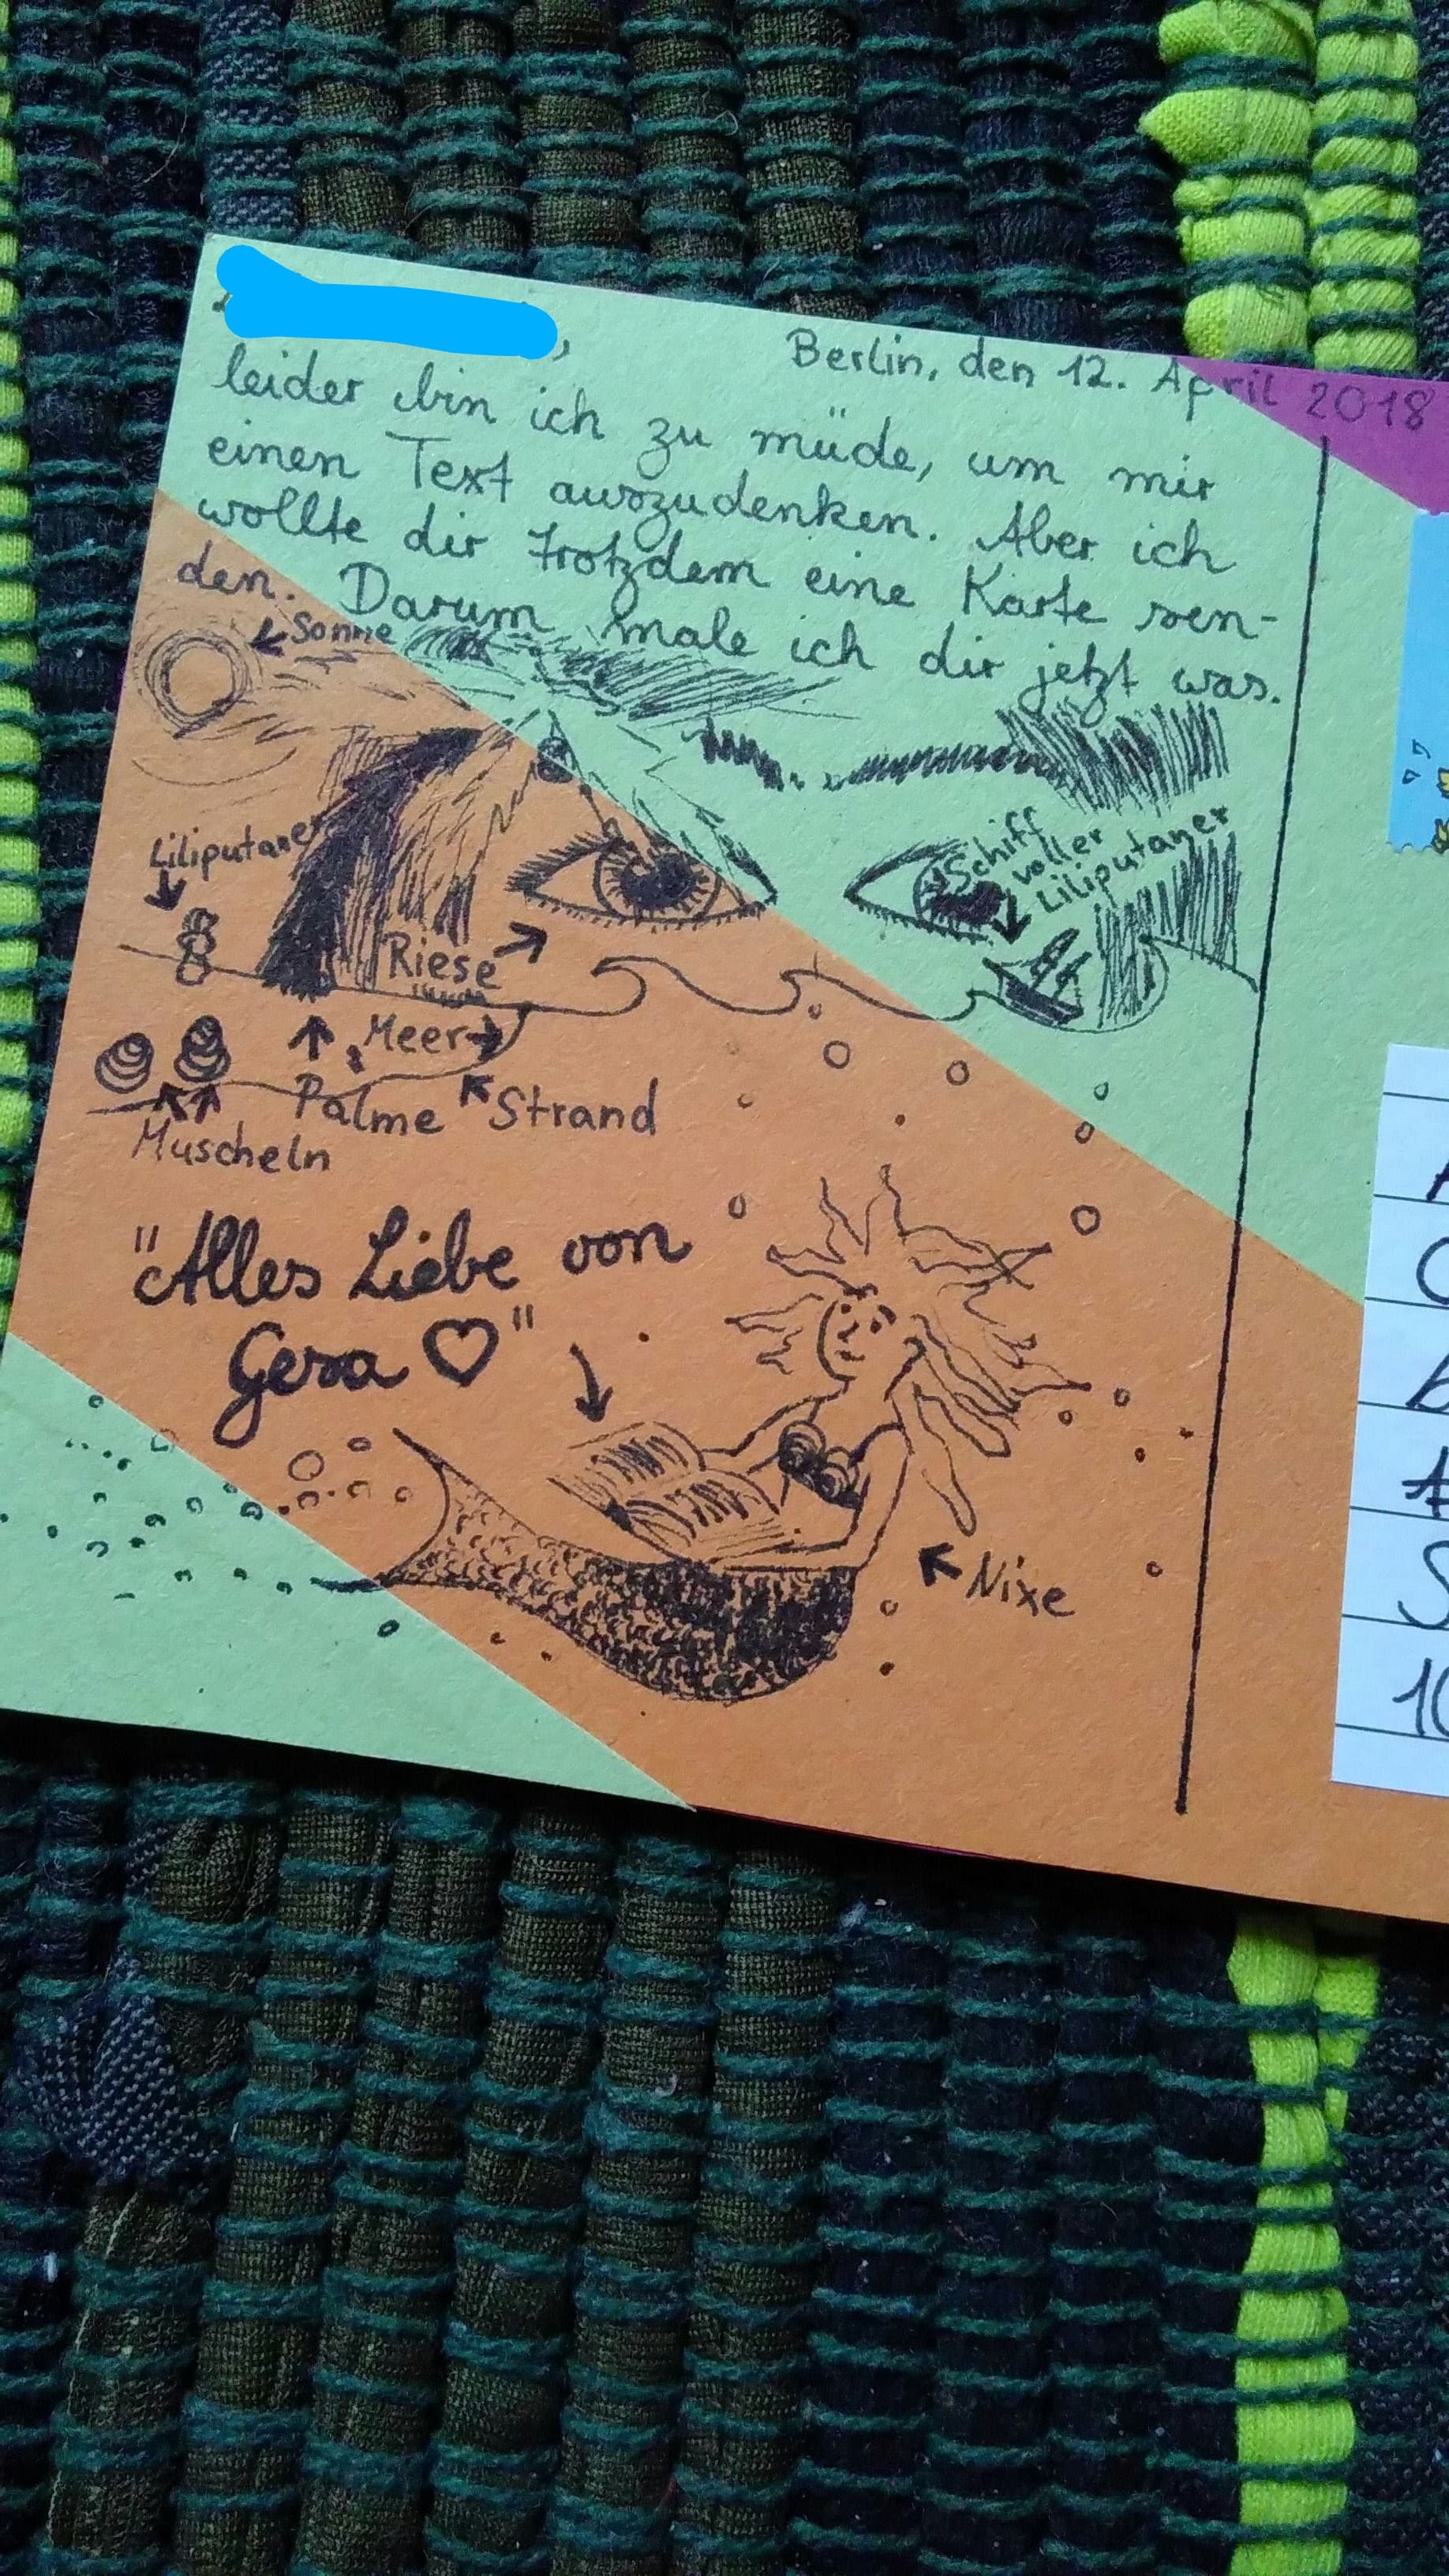 Berlin, den 12. April 2018
leider bin ich zu müde, um mir
einen Text auszudenken. Aber ich
wollte dir trotzdem eine Karte sen-
den. Darum male ich dir jetzt was.
Sonne
Liliputaner
Schiff
voller
Liliputaner
Riese
Meer
Palme
Strand
Muscheln
"Alles Liebe von
Gesa ♡"
Nixe